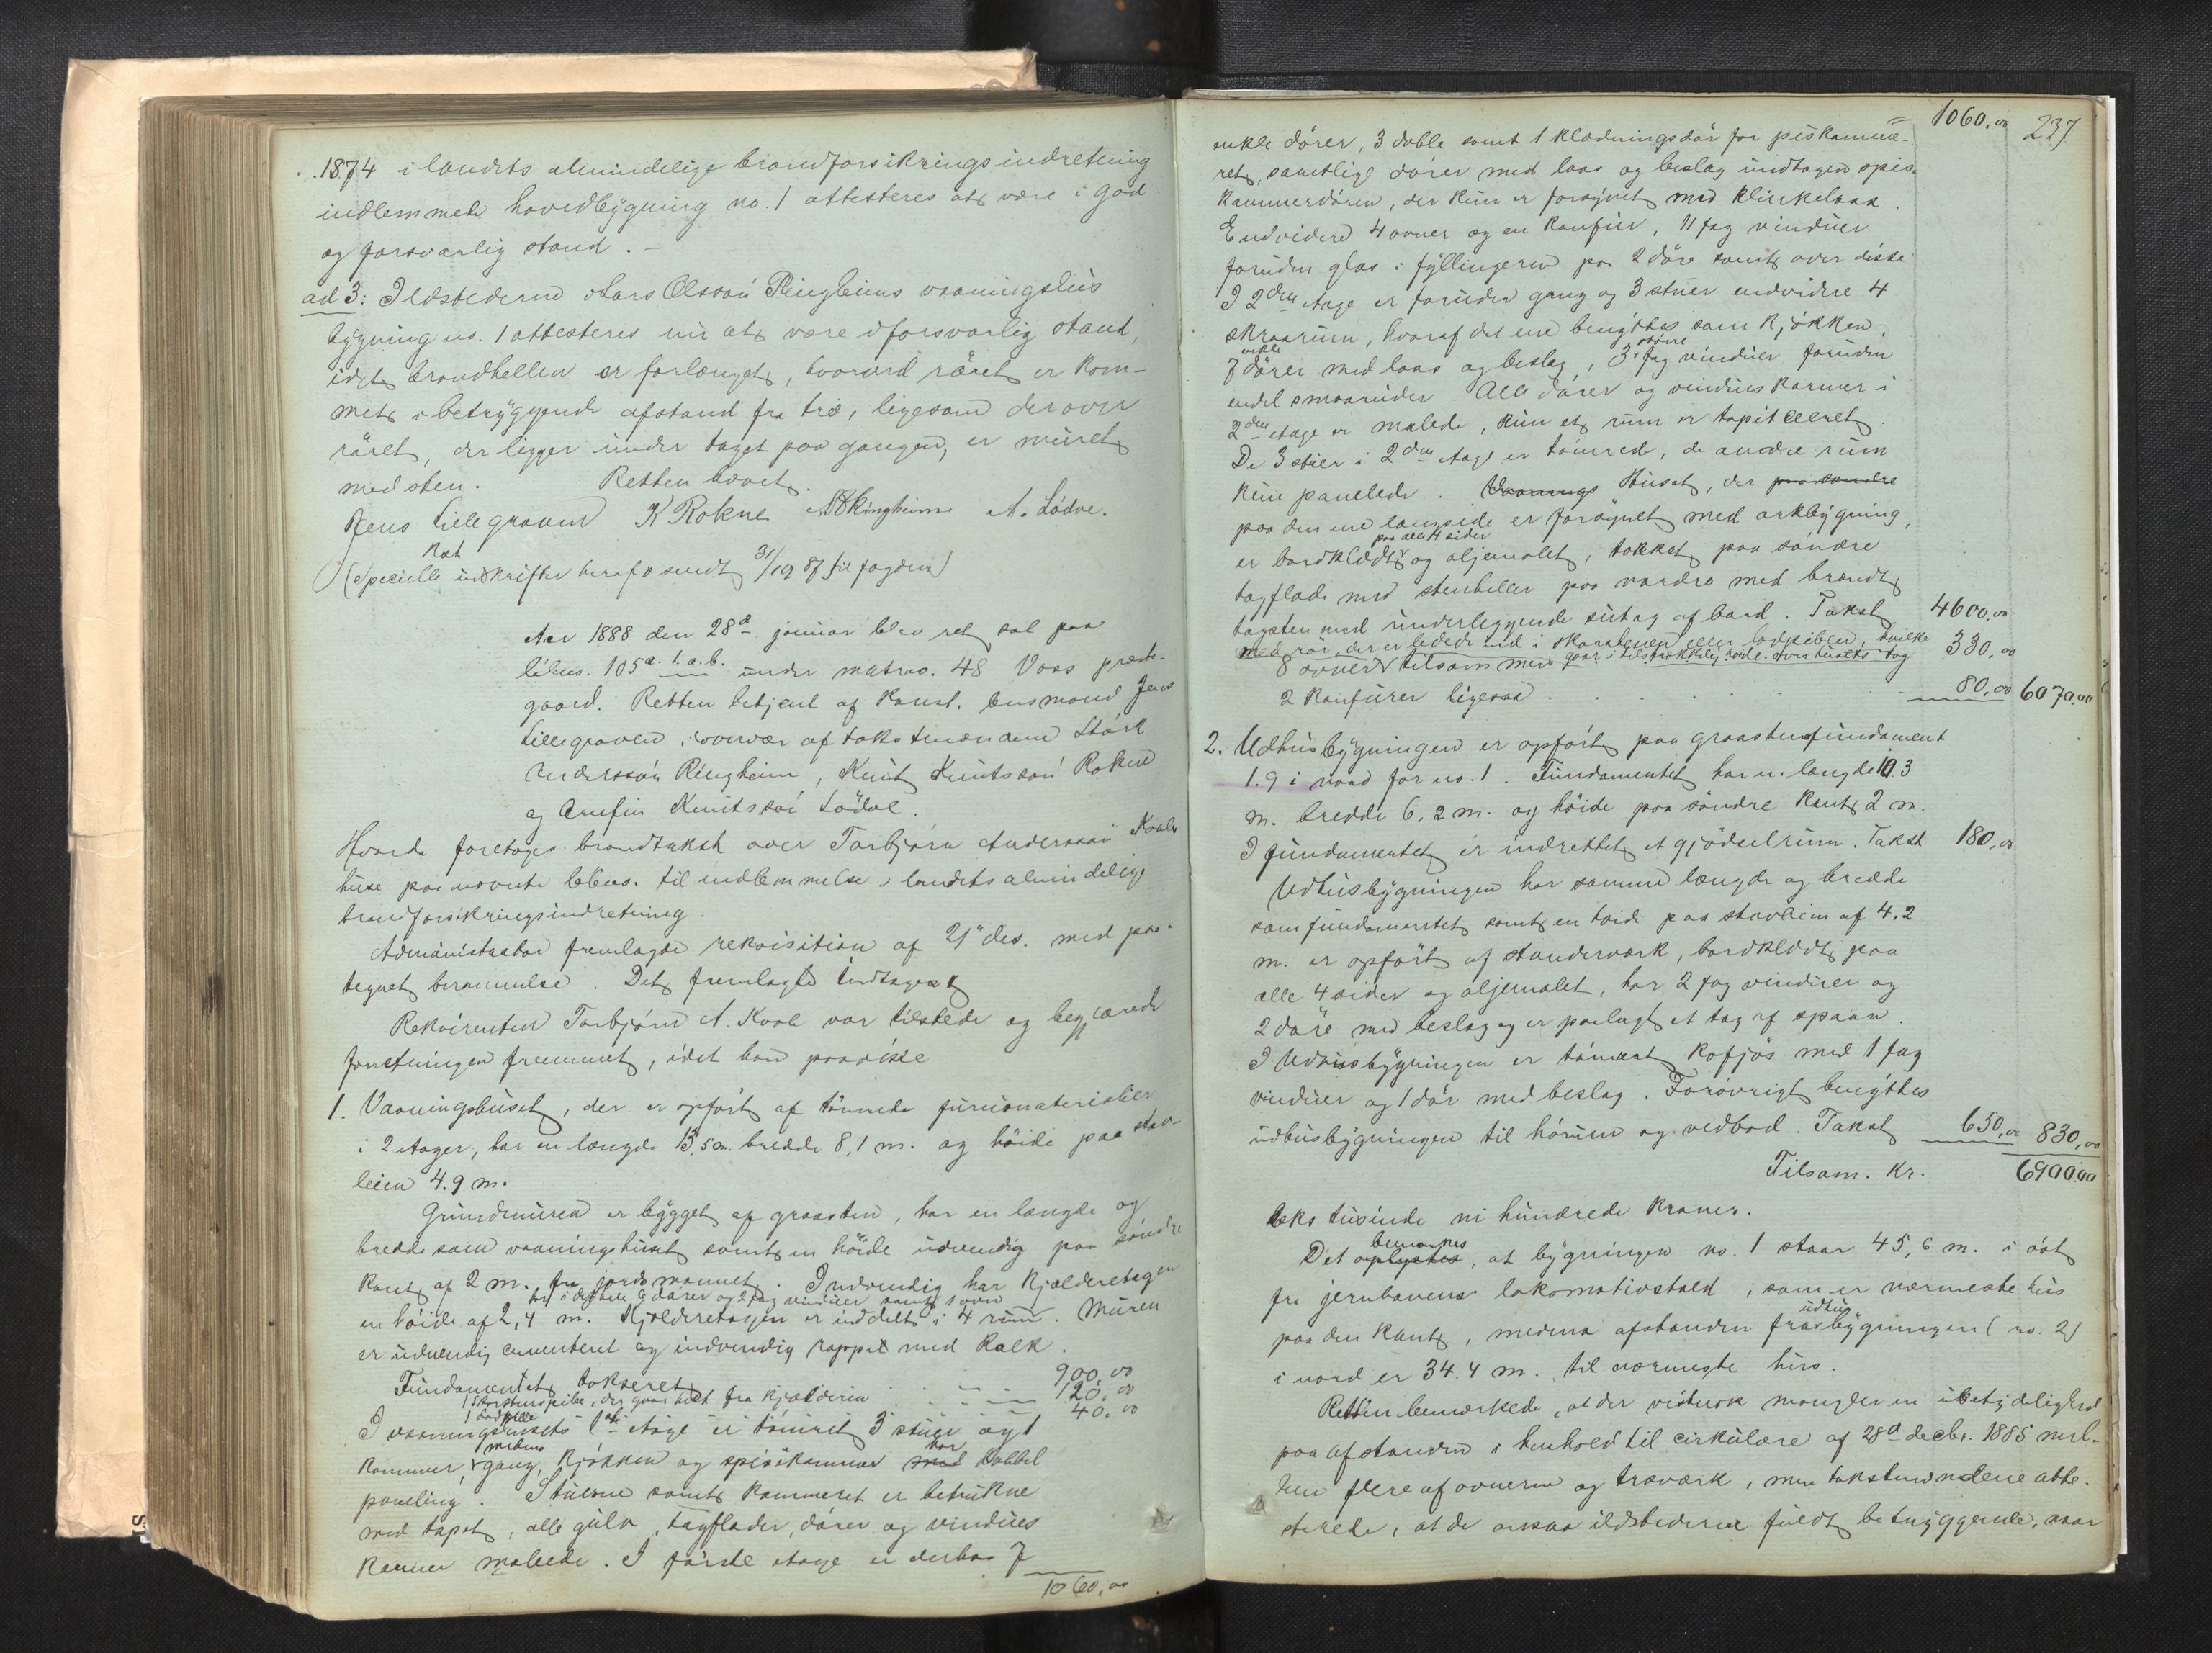 1874 i landets almindelige brandforsikringsindretning
indlemmede hovedbygning no. 1 attesteres at være i god
og forsvarlig stand. –
ad 3: Ildstederne i Lars Olssøn Ringheims vaaningshus
bygning no. 1 attesteres nu at være i forsvarlig stand,
idet brandhellen er forlænget, hvorved røret er kom-
met i betryggende afstand fra træ, ligesom derover
røret, der ligger under taget paa gangen, er muret
med sten. Retten hævet.
Jens Lillegraven K Rokne Ringheim A. Lødve.
(Specielle udskrifter heraf sendt 31/12 87 til fogden)
Aar 1888 den 28de januar blev ret sat paa
løbeno. 105a. 1. a. b. under matrno. 48 Voss præste-
gaard. Retten betjent af konst. lensmand Jens
Lillegraven i overvær af takstmændene Størk
Anderssøn Ringheim, Knut Knutssøn Rokne
og Anfin Knutssøn Lødve.
Hvorda foretoges brandtakst over Torbjørn Anderssøn Kvale
huse paa nævnte løbeno. til indlemmelse i landets almindelige
brandforsikringsindretning.
Administrator fremlagde rekvisition af 21de des. med paa-
tegnet berammelse. Det fremlagte indtages
Rekvirenten Torbjørn A. Kvale var tilstede og begjærede
forretningen fremmet, idet han paaviste
1. Vaaningshuset, der er opført af tømrede furumaterialier
i 2 etager, har en længde 13,5 m. bredde 8,1 m. og høide paa stav-
leien 4.9 m.
Grundmuren er bygget af graasten, har en længde og
bredde som vaaningshuset samt en høide udvendig paa søndre
kant af 2 m. fra jordsmonnet. Indvendig har kjælderetagen
har i det hele 9 dører og 2 fag vinduer samt 1 ovn
en høide af 2,4 m. Kjælderetagen er inddelt i 4 rum. Muren
er udvendig cementeret og indvendig rappet med kalk.
Fundamentet takseret 900,00
1 skorstenspibe, der gaar helt fra kjælderen 120,00
1 ladpibe 40,00
I vaaningshusets 1ste etage er tømret 3 stuer og 1
kammer, medens gang, kjøkken og spiskammer har dobbel
paneling. Stuerne samt kammeret er betrukne
med tapet, alle gulv, tagflader, dører og vindues
karmer malede. I første etage er derhos 7
1060,00
1060,00 237
enkle dører, 3 doble samt 1 klædningsdør for piskamme-
ret, samtlige dører med laas og beslag undtagen spis-
kammerdøren, der kun er forsynet med klinkelaas.
Endvidere 4 ovner og en komfur, 11 fag vinduer
foruden glas i fyllingerne paa 2 døre samt over disse
I 2den etage er foruden gang og 3 stuer endvidere 4
skraarum, hvoraf det ene benyttes som kjøkken,
7 enkle dører med laas og beslag, 3 større fag vinduer foruden
endel smaaruder. Alle dører og vindueskarmer i
2den etage er malede, kun et rum er tapitceret.
De 3 stuer i 2den etage er tømrede, de andre rum
kun panelede. Vaanings Huset, der paa søndre
paa den ene langside er forsynet med arkbygning,
er bordklædt paa alle 4 sider og oljemalet, tækket paa søndre
tagflade med stenheller paa nordre med brændt
tagsten med underliggende sutag af bord. Takst 4600,00
med rør, der er ledede ind i skorstenen eller ladpiben, hvilke
8 ovner tilsammen gaar i tilstrækkelig høide over husets tag 330,00
2 komfurer ligesaa 80,00 6070,00
2. Udhusbygningen er opført paa graastensfundament
1.9 i nord for no. 1. Fundamentet har en længde 10.3
m. bredde 6,2 m. og høide paa søndre kant 2 m.
I fundamentet er indrettet et gjødselrum. Takst 180,00
Udhusbygningen har samme længde og bredde
som fundamentet samt en høide paa stavleien af 4.2
m. er opført af standerværk, bordklædt paa
alle 4 sider og oljemalet, har 2 fag vinduer og
2 døre med beslag og er paalagt et tag af spaan.
I Udhusbygningen er tømret kofjøs med 1 fag
vinduer og 1 dør med beslag. Forøvrigt benyttes
udhusbygningen til hørum og vedbod. Takst 650,00 830,00
Tilsam. Kr. 6900,00
seks tusinde ni hundrede kroner.
Det oplystes bemærkes, at bygningen no. 1 staar 45,6 m. i øst
fra jernbanens lokomotivstald, som er nærmeste hus
paa den kant, medens afstanden fra udhusbygningen (no. 2)
i nord er 34.4 m. til nærmeste hus.
Retten bemærkede, at der vistnok mangler en ubetydelighed
paa afstanden i henhold til cirkulære af 28de decbr. 1885 mel-
lem flere af ovnerne og træværk, men takstmændene atte-
sterede, at de ansaa ildstederne fuldt betryggende, naar